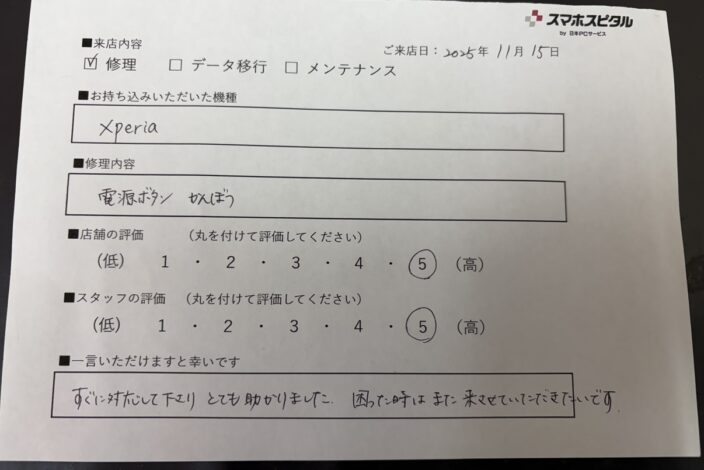 スマホスピタル
by 日本PCサービス
■来店内容
ご来店日：2025年 11月 15日
☑ 修理 □ データ移行 □ メンテナンス
■お持ち込みいただいた機種
Xperia
■修理内容
電源ボタン かんぼつ
■店舗の評価 （丸を付けて評価してください）
（低） 1 ・ 2 ・ 3 ・ 4 ・ 5 （高）
■スタッフの評価 （丸を付けて評価してください）
（低） 1 ・ 2 ・ 3 ・ 4 ・ 5 （高）
■一言いただけますと幸いです
すぐに対応して下さり とても助かりました。 困った時は また 来させていただきたいです。